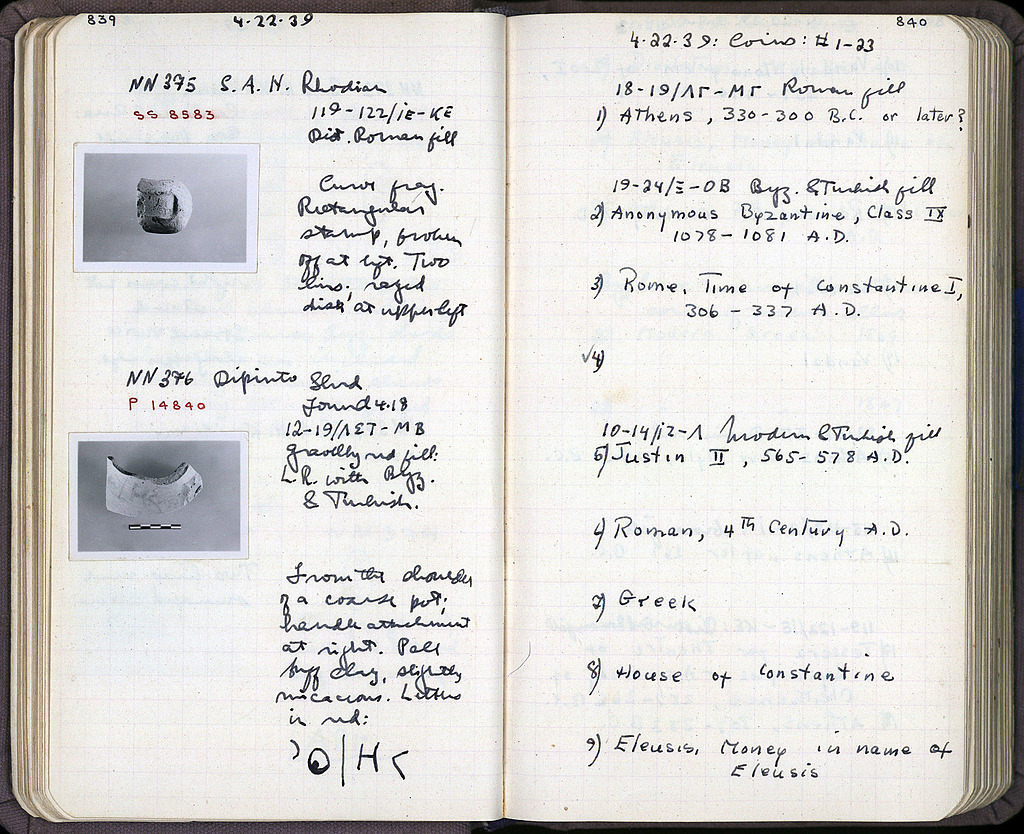 839
4.22.39
NN 375 S. A. H. Rhodian
SS 8583
119-122/ΙΕ-ΚΕ
Dist. Roman fill
Curve frag.
Rectangular
stamp, broken
off at left. Two
lines,
disk at upper left
NN 376 Dipinto Sherd
P 14840
Found 4.18
12-19/ΛΣΤ-ΜΒ
Gravelly red fill:
L.R. with Byz.
& Turkish.
From the shoulder
of a coarse pot;
handle attachment
at right. Pale
buff clay, slightly
micaceous. Letters
in red:
840
4.22.39: Coins: #1-23
18-19/ΛΓ-ΜΓ Roman fill
1) Athens, 330-300 B.C. or later?
19-24/Ξ-ΟΒ Byz. & Turkish fill
2) Anonymous Byzantine, Class IX
1078-1081 A.D.
3) Rome, Time of Constantine I,
306 - 337 A.D.
√4)
10-14/ΙΖ-Λ Modern & Turkish fill
5) Justin II, 565-578 A.D.
6) Roman, 4th Century A.D.
7) Greek
8) House of Constantine
9) Eleusis, Money in name of
Eleusis